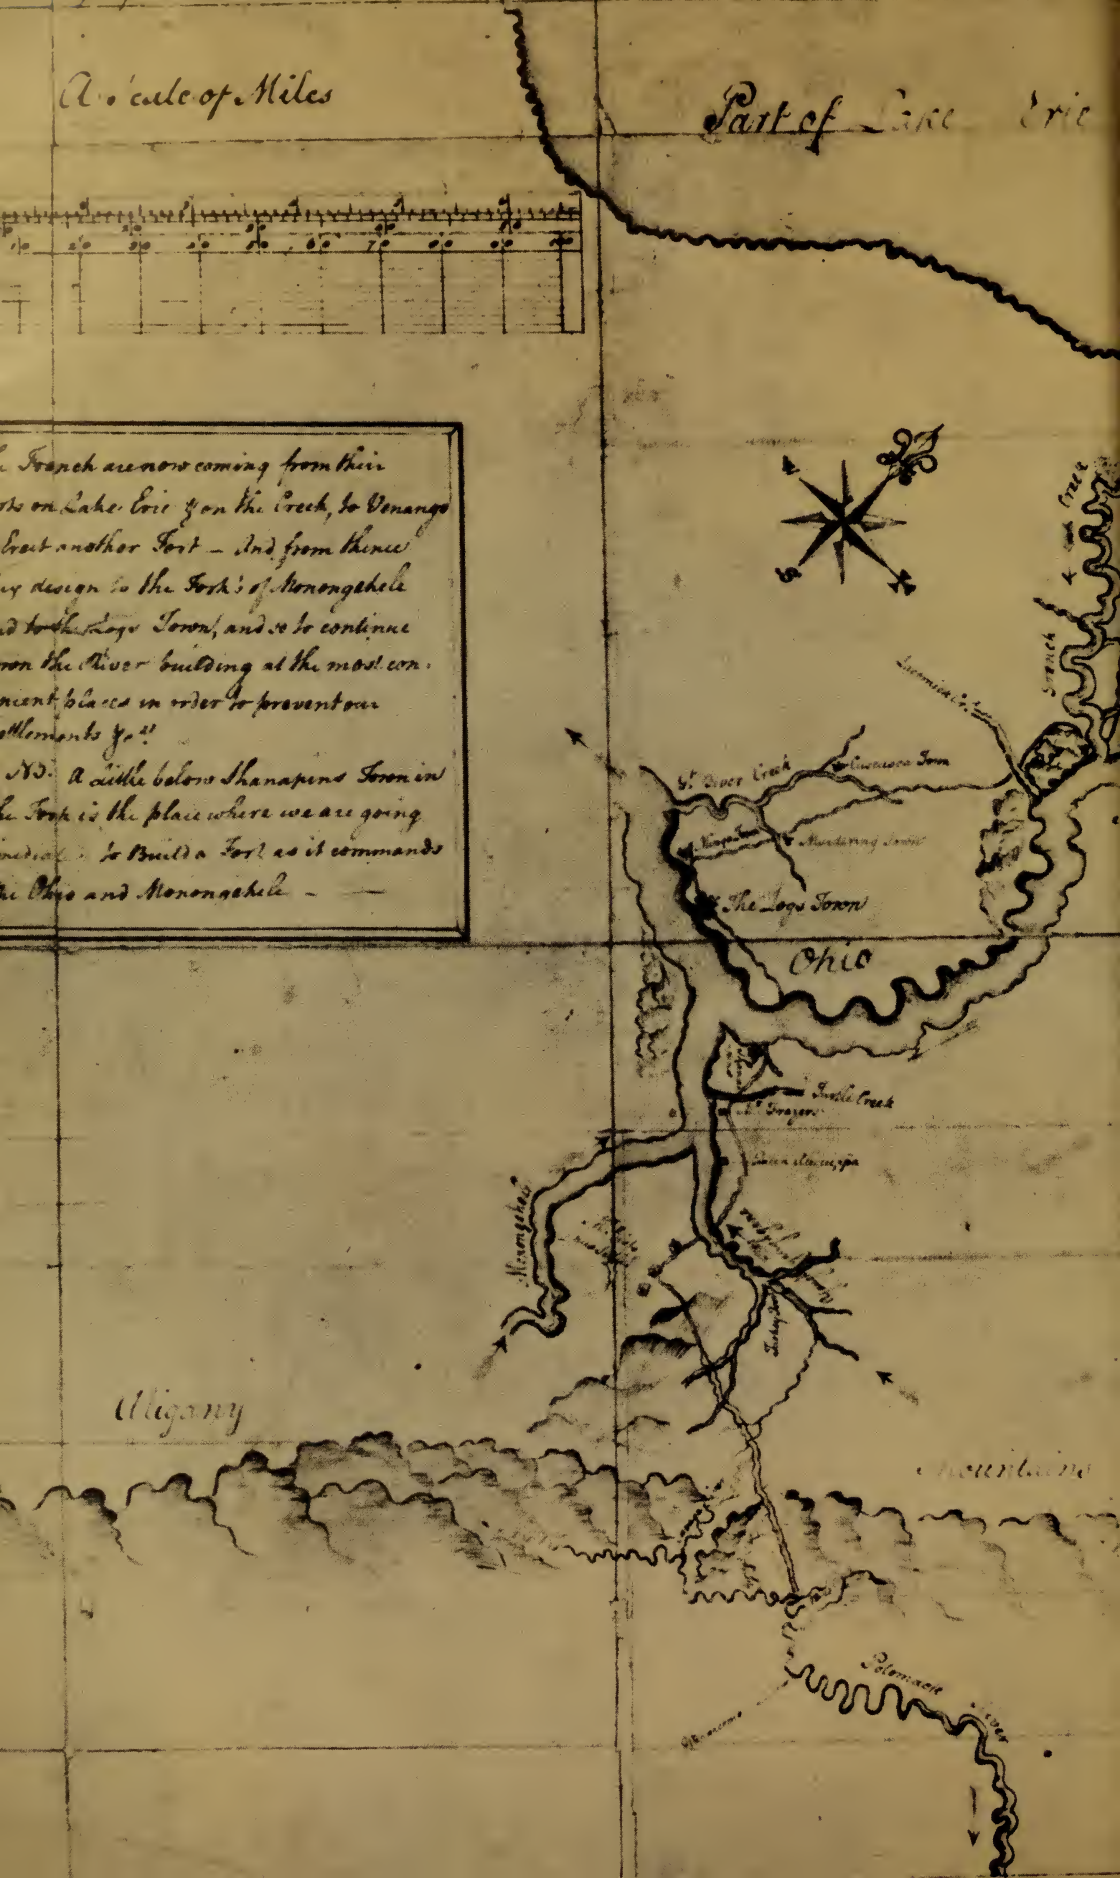 A Scale of Miles
Part of Lake Erie
10 20 30 40 50 60 70
French are now coming from their
on Lake Erie & on the Creek, to Venango
Erect another Fort - And from thence
design to the Fork's of Monongehele
to the Logs Town, and so to continue
the River building at the most con-
places in order to prevent our
N.B. A Little below Shanapins Town in
Fork is the place where we are going
to Build a Fort as it commands
the Ohio and Monongehele
French Creek
Gt. Bever Creek
Cuscusca Town
Murdering Town
The Logs Town
Ohio
Turtle Creek
Mr. Frazers
Monongehele
Aligany
Mountains
Potomack River